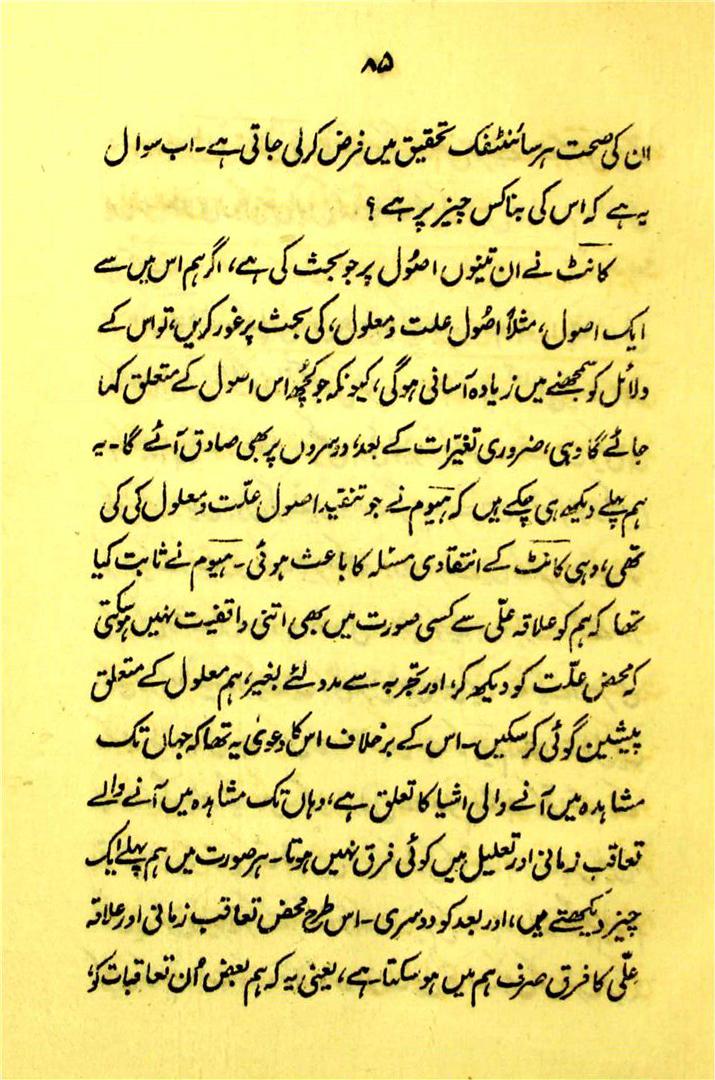 ۸۵
ان کی صحت ہر سائنٹفک تحقیق میں فرض کر لی جاتی ہے۔ اب سوال
یہ ہے کہ اس کی بنا کس چیز پر ہے؟
کانٹ نے ان تینوں اصول پر جو بحث کی ہے، اگر ہم اس میں سے
ایک اصول، مثلاً اصول علت و معلول، کی بحث پر غور کریں، تو اس کے
دلائل کو سمجھنے میں زیادہ آسانی ہوگی، کیونکہ جو کچھ اس اصول کے متعلق کہا
جائے گا وہی، ضروری تغیّرات کے بعد، دوسروں پر بھی صادق آئے گا۔ یہ
ہم پہلے دیکھ ہی چکے ہیں کہ ہیوم نے جو تنقید اصول علّت و معلول کی کی
تھی، وہی کانٹ کے انتقادی مسئلہ کا باعث ہوئی۔ ہیوم نے ثابت کیا
تھا کہ ہم کو علاقہ علّی سے کسی صورت میں بھی اتنی واقفیت نہیں ہوسکتی
کہ محض علّت کو دیکھ کر، اور تجربہ سے مدد لئے بغیر، ہم معلول کے متعلق
پیشین گوئی کر سکیں۔ اس کے برخلاف اس کا دعویٰ یہ تھا کہ جہاں تک
مشاہدہ میں آنے والی اشیا کا تعلق ہے، وہاں تک مشاہدہ میں آنے والے
تعاقب زمانی اور تعلیل میں کوئی فرق نہیں ہوتا۔ ہر صورت میں ہم پہلے ایک
چیز دیکھتے ہیں، اور بعد کو دوسری۔ اس طرح محض تعاقب زمانی اور علاقہ
علّی کا فرق صرف ہم میں ہو سکتا ہے، یعنی یہ کہ ہم بعض اُن تعاقبات کو،